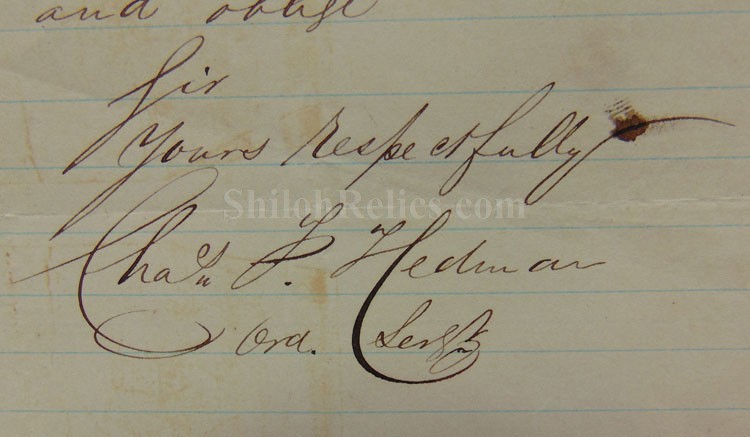 and oblige
Sir
Yours Respectfully
ShilohRelics.com
Chas. F. Hedman
Ord. Sergt